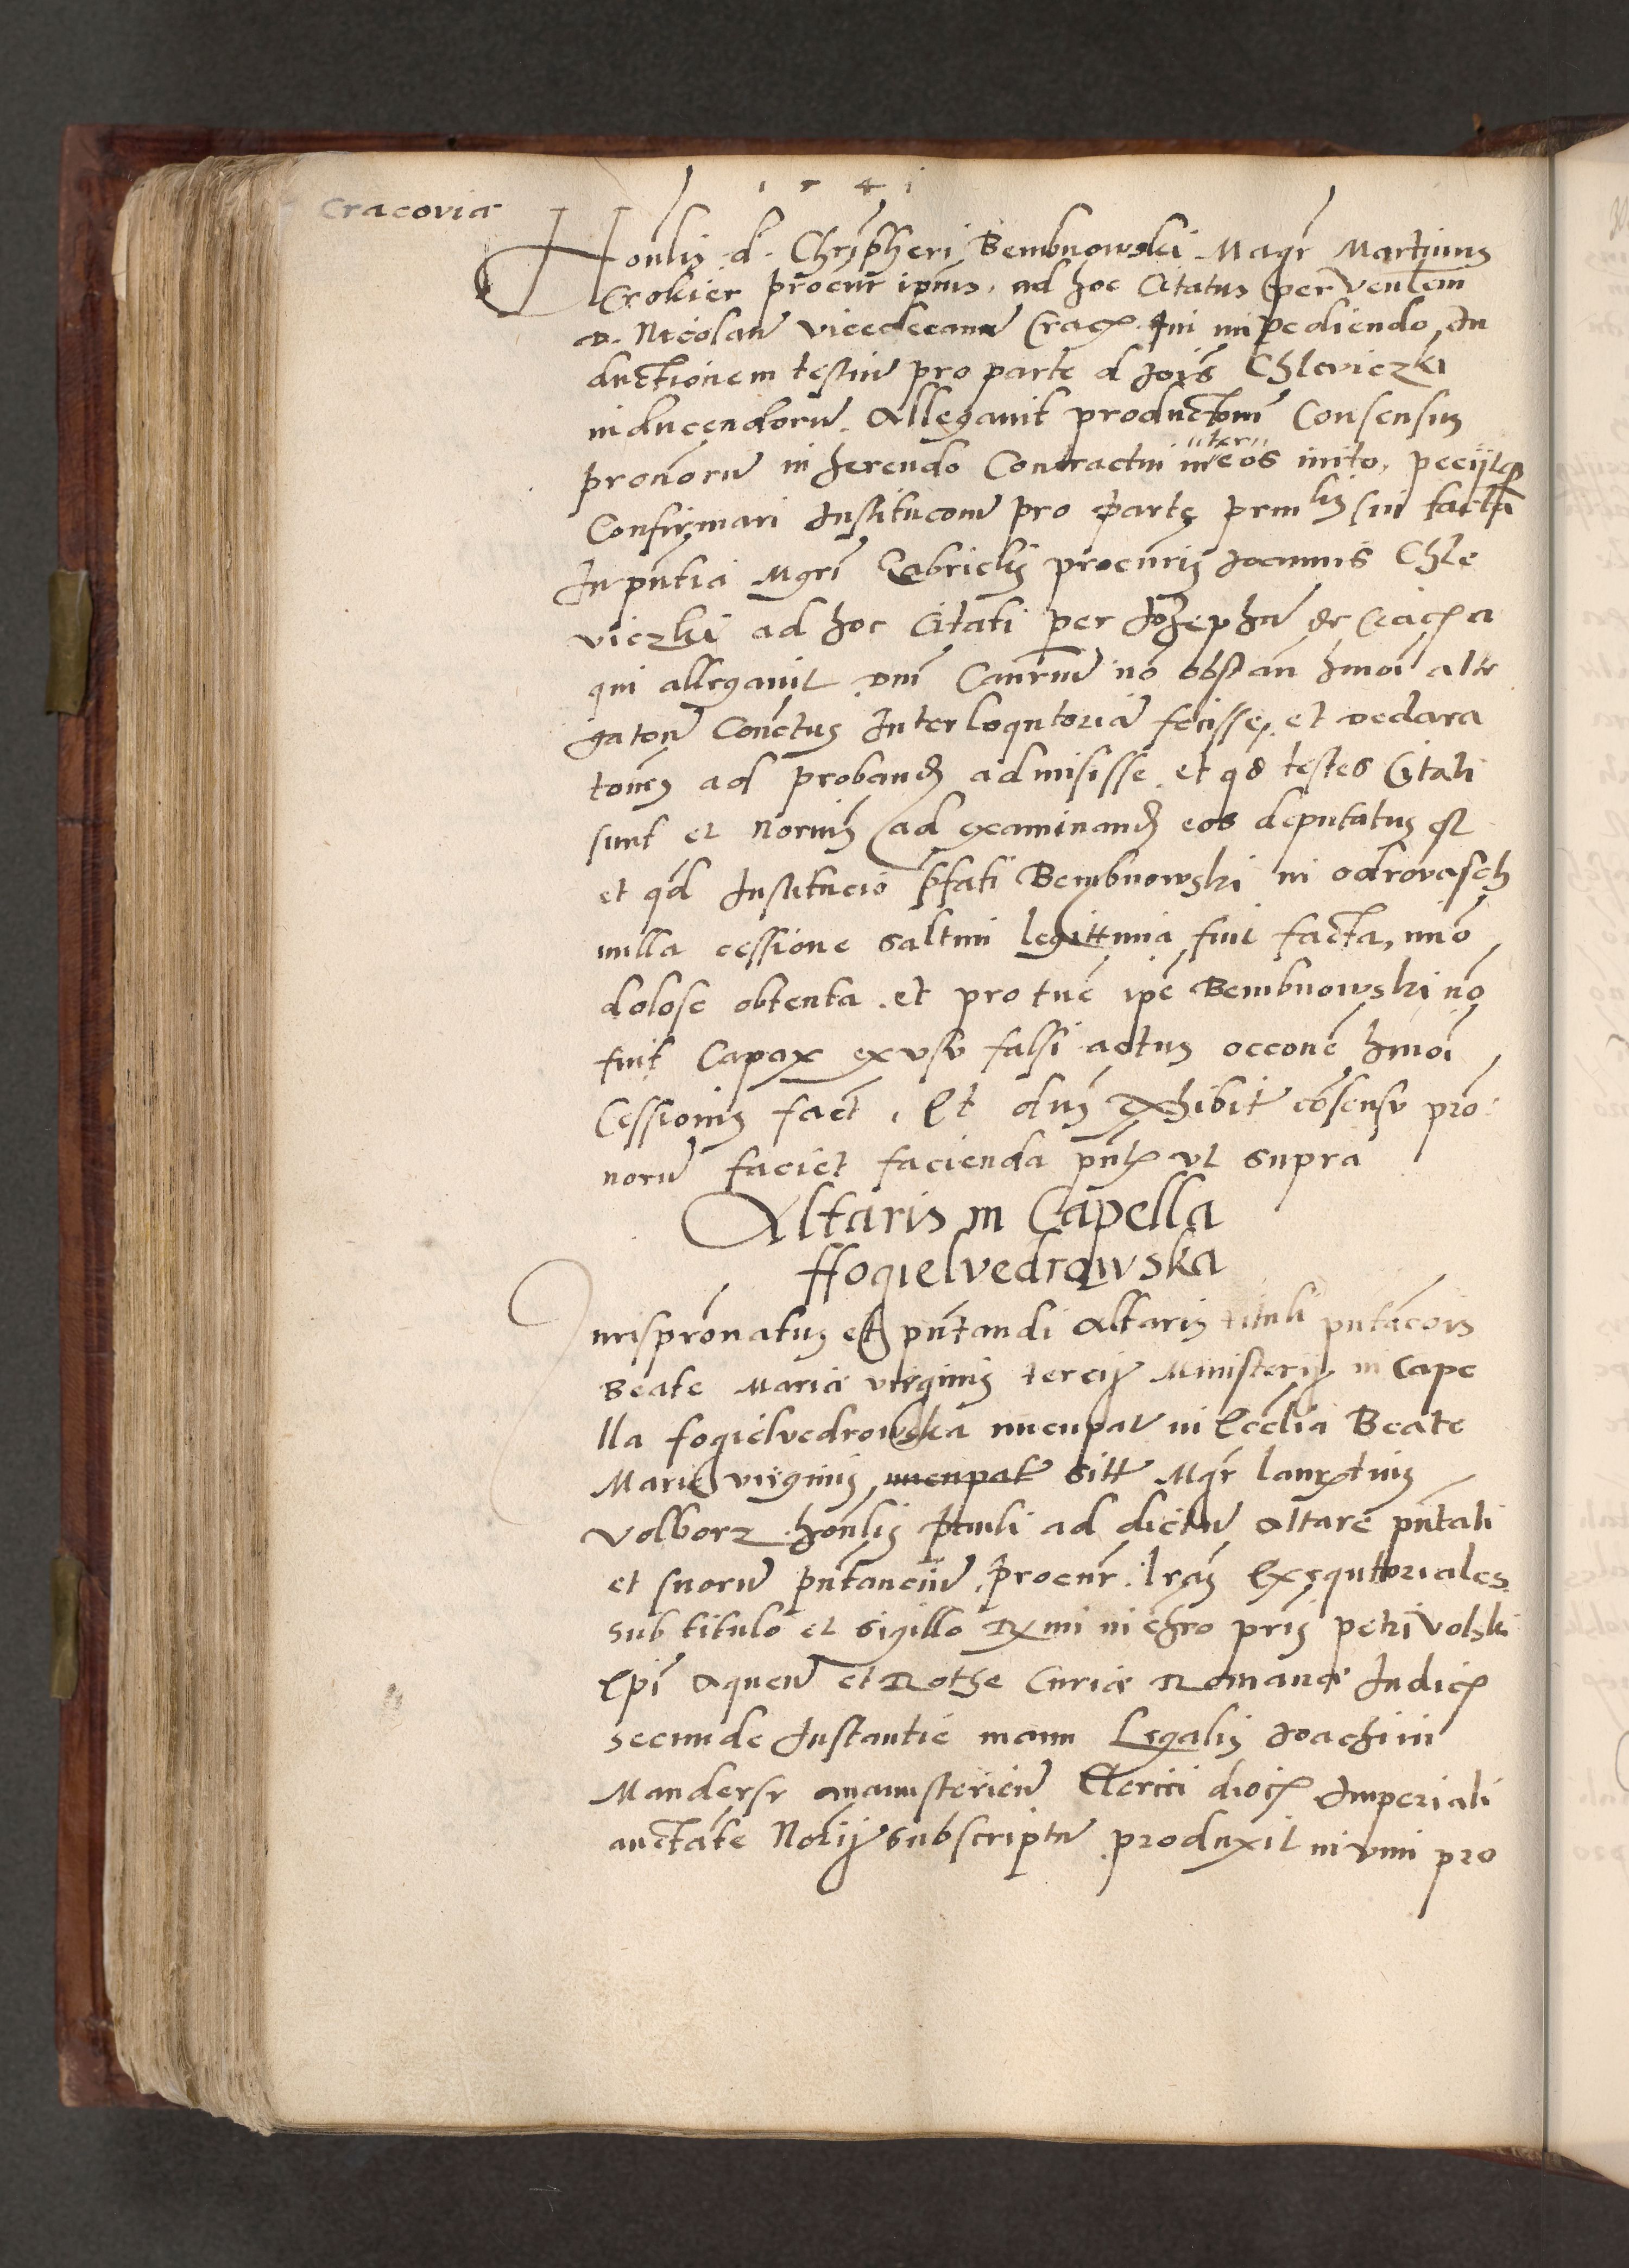 1541
Cracovia
Honlis d. Chrispheri Bembnowski Magr Martinus
Crokier procur ipius, ad hoc Citatus per venlem
D. Nicolau vicedecanu Crac. qui impediendo In
ductionem testiu pro parte d Jois Chleviczki
inducendoru. Allegavit productoni Consensus
pronoru in herendo Contractui inter eos inito, peciitq
Confirmari Institucone pro parte prnlis sui facta
In pntia Mgri Gabrielis procuris Joannis Chle
viczki ad hoc Citati per Jozephu de
qui allegavit dni Canriu no obstan hmoi alle
gaton Conctus Interloqutoria fecisse, et declara
tonis ad proband admisisse et qd testes Citati
sunt et Norius ad examinand eos deputatus est
et qd Institucio pfati Bembnowski in odrovasch
nulla cessione saltim legittima fuit facta, imo
dolose obtenta et pro tuc ipe Bembnowski no
fuit Capax ex usu falsi actus occone hmoi
Cessionis fact. Et dus Exhibit consensu pro
noru faciet facienda pntx ut supra
Altaris in Capella
ffogielvedrowska
Jurispronatus et pntandi Altaris tituli pntacois
Beate Marie virginis tercij Ministerij in Cape
lla fogielvedrowska nuncupat in Ecclia Beate
Marie virginis nuncupat sitt Mgr laurentius
volborz honlis Pauli ad dictu Altare pntati
et suoru pntanciu procur lras Exequtoriales
sub titulo et sigillo Rxmi in chro pris petri volski
Epi Aquen et Rothe Curie Romane Judic
secunde Instantie manu Legalis Joachim
Manderse monasterien Clerici dioc Imperiali
auctate Notij subscriptu produxit in vim pro